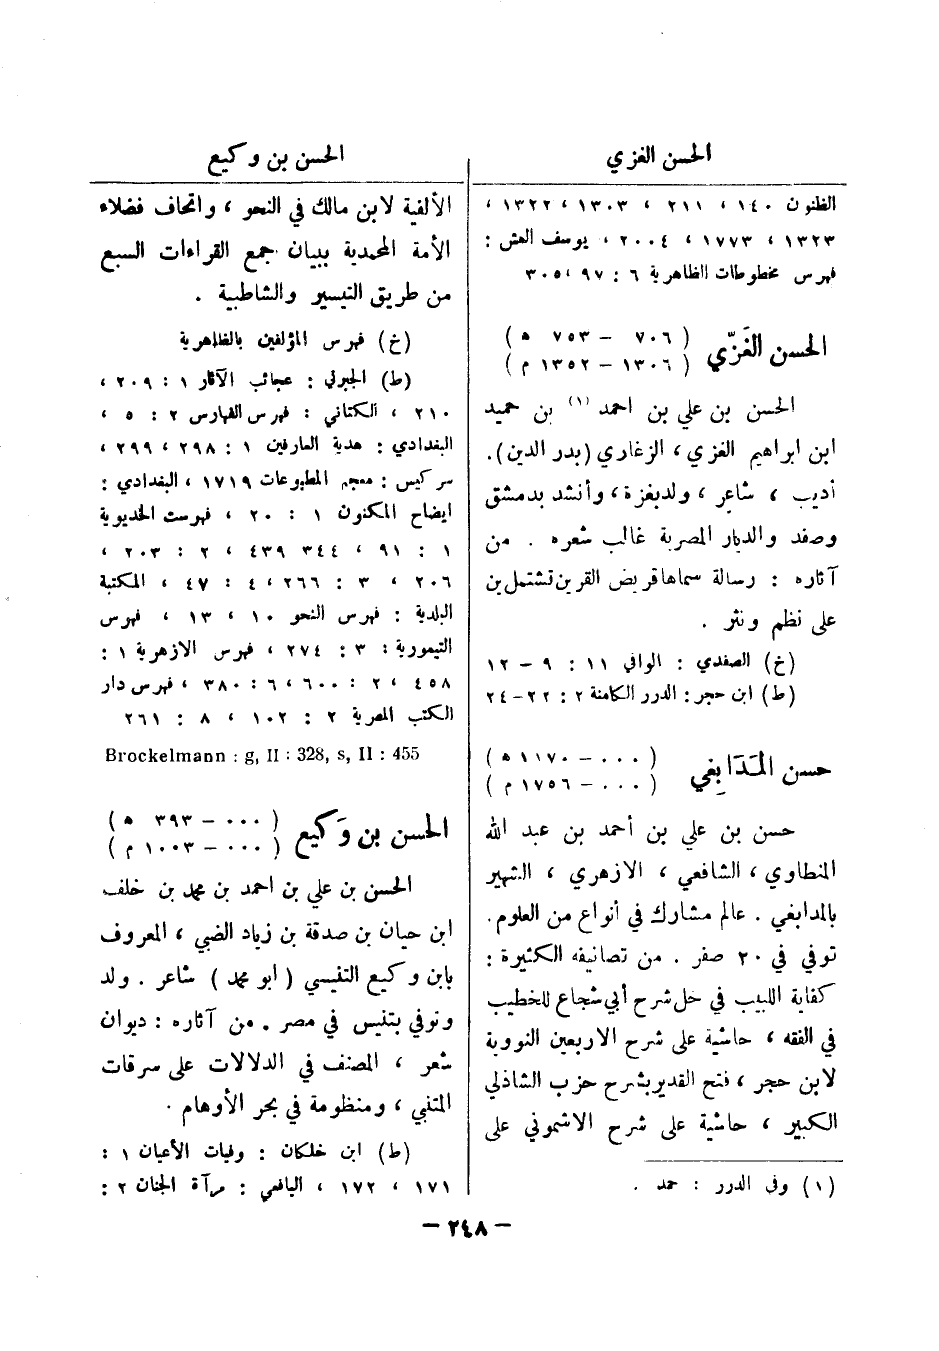 الحسن الغزي
الظنون ١٤٠ ، ٢١١ ، ١٣٠٣ ، ١٣٢٢ ،
١٣٢٣ ، ١٧٧٣ ، ٢٠٠٤ ، يوسف العش :
فهرس مخطوطات الظاهرية ٦ : ٩٧ ،٣٠٥
الحسن الغَزّي ( ٧٠٦ – ٧٥٣ ه )
( ١٣٠٦ – ١٣٥٢ م )
الحسن بن علي بن احمد (١) بن حميد
ابن ابراهيم الغزي ، الزغاري (بدر الدين).
أديب ، شاعر ، ولدبغزة ، وأنشد بدمشق
وصفد والديار المصرية غالب شعره . من
آثاره : رسالة سماها قريض القرين تشتمل بن
على نظم ونثر .
(خ) الصفدي : الوافي ١١ : ٩ – ١٢
(ط) ابن حجر : الدرر الكامنة ٢ : ٢٢ – ٢٤
حسن المَدَابِغي ( ٠٠٠ – ١١٧٠ ه )
( ٠٠٠ – ١٧٥٦ م )
حسن بن علي بن أحمد بن عبد الله
المنطاوي ، الشافعي ، الازهري ، الشهير
بالمدابغي . عالم مشارك في أنواع من العلوم.
توفي في ٢٠ صفر . من تصانيفه الكثيرة :
كفاية اللبيب في حل شرح أبي شجاع للخطيب
في الفقه ، حاشية على شرح الاربعين النووية
لابن حجر ، فتح القدير بشرح حزب الشاذلي
الكبير ، حاشية على شرح الاشموني على
(١) وفي الدرر : حمد .
الحسن بن وكيع
الألفية لابن مالك في النحو ، واتحاف فضلاء
الأمة المحمدية ببيان جمع القراءات السبع
من طريق التيسير والشاطبية .
(خ) فهرس المؤلفين بالظاهرية
(ط) الجبرتي : عجائب الآثار ١ : ٢٠٩ ،
٢١٠ ، الكتاني : فهرس الفهارس ٢ : ٥ ،
البغدادي : هدية العارفين ١ : ٢٩٨ ، ٢٩٩ ،
سركيس : معجم المطبوعات ١٧١٩ ، البغدادي :
ايضاح المكنون ١ : ٢٠ ، فهرست الخديوية
١ : ٩١ ، ٣٤٤ ٤٣٩ ، ٢ : ٢٠٣ ،
٢٠٦ ، ٣ : ٢٦٦ ، ٤ : ٤٧ ، المكتبة
البلدية : فهرس النحو ١٠ ، ١٣ ، فهرس
التيمورية : ٣ : ٢٧٤ ، فهرس الازهرية ١ :
٤٥٨ ، ٢ : ٦٠٠ ، ٦ : ٣٨٠ ، فهرس دار
الكتب المصرية ٢ : ١٠٢ ، ٨ : ٢٦١
Brockelmann : g, II : 328, s, II : 455
الحسن بن وَكيع ( ٠٠٠ – ٣٩٣ ه )
( ٠٠٠ – ١٠٠٣ م )
الحسن بن علي بن احمد بن محمد بن خلف
ابن حيان بن صدقة بن زياد الضبي ، المعروف
بابن وكيع التنيسي ( ابو محمد ) شاعر . ولد
وتوفي بتنيس في مصر . من آثاره : ديوان
شعر ، المصنف في الدلالات على سرقات
المتنبي ، ومنظومة في بحر الأوهام .
(ط) ابن خلكان : وفيات الأعيان ١ :
١٧١ ، ١٧٢ ، اليافعي : مرآة الجنان ٢ :
– ٢٤٨ –